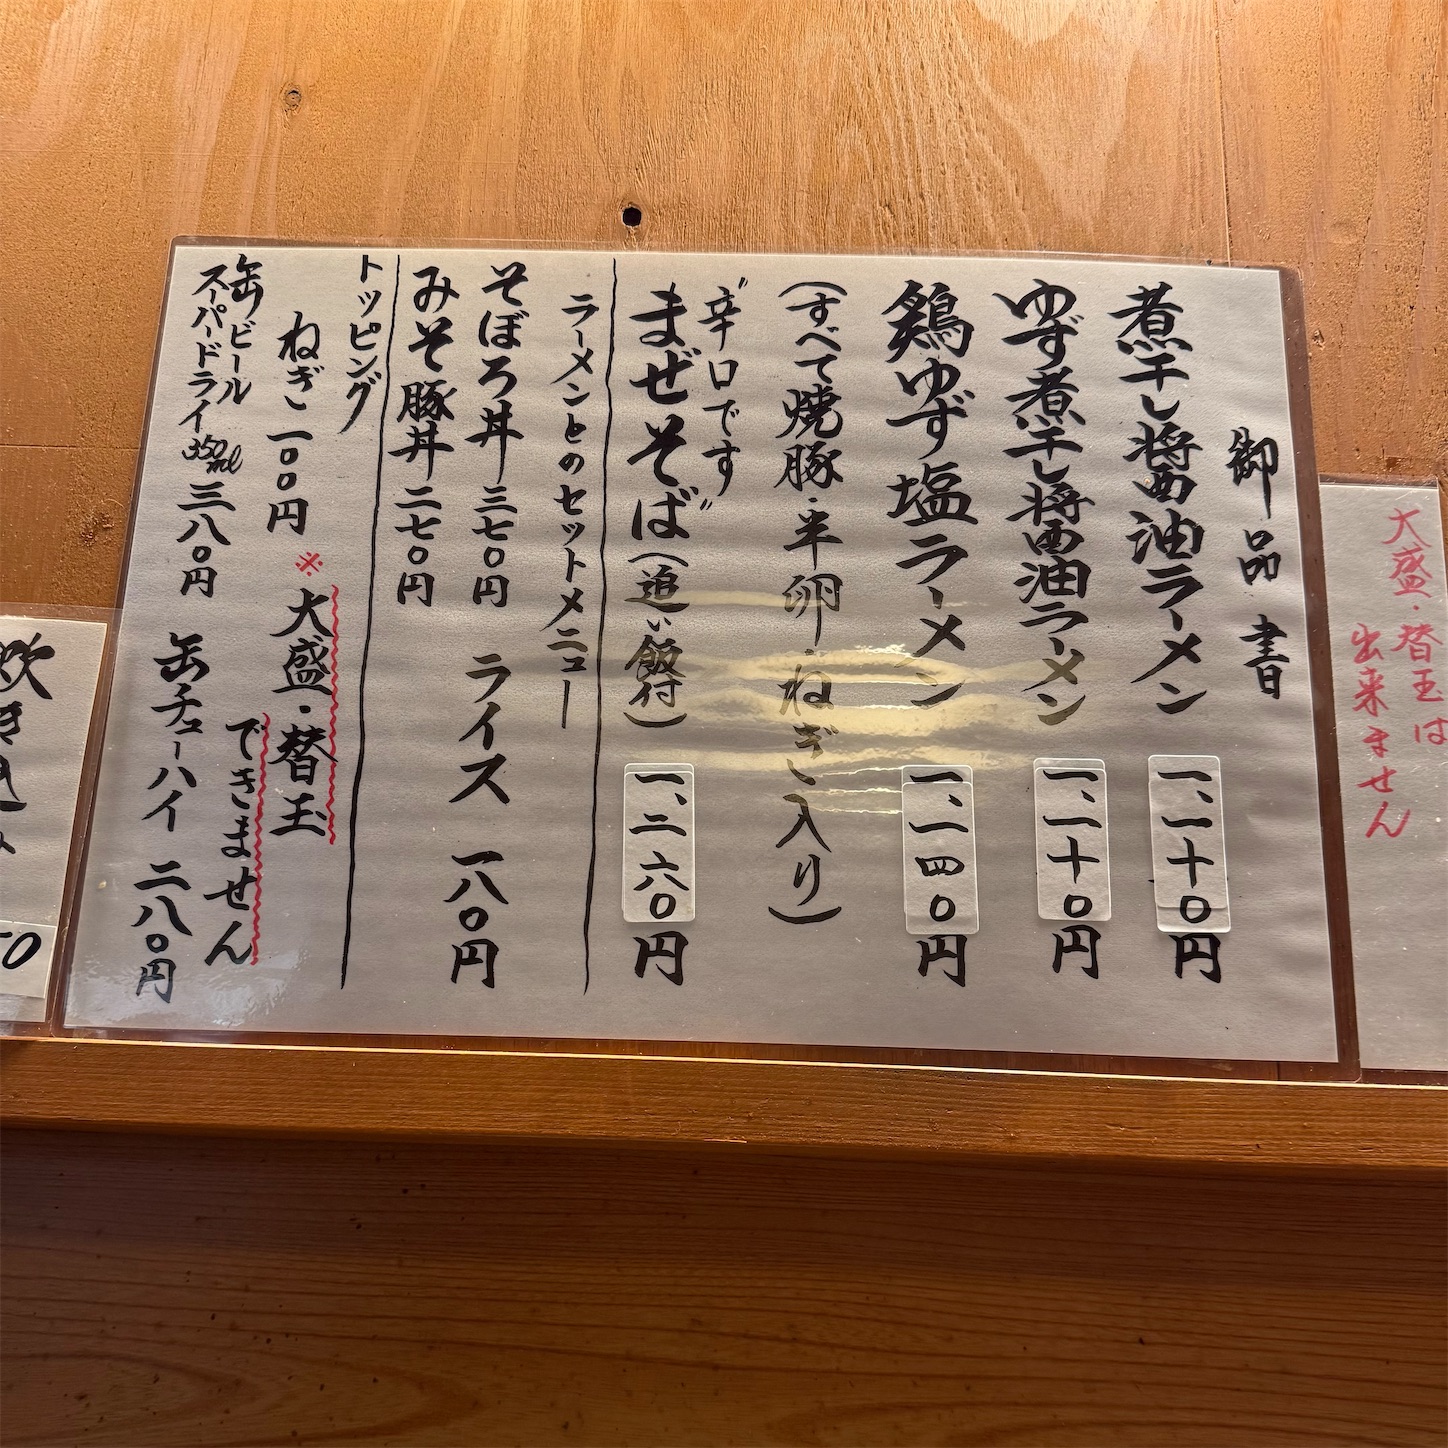 大盛・替玉は
出来ません
御品書
煮干し醤油ラーメン 一、一十〇円
ゆず煮干し醤油ラーメン 一、一十〇円
鶏ゆず塩ラーメン 一、一四〇円
(すべて焼豚・半卵・ねぎ入り)
"辛口です"
まぜそば(追い飯付) 一、二六〇円
ラーメンとのセットメニュー
そぼろ丼 三七〇円 ライス 一八〇円
みそ豚丼 二七〇円
トッピング
ねぎ 一〇〇円
※大盛・替玉
できません
缶ビール
スーパードライ350ml 三八〇円
缶チューハイ 二八〇円
炊き込み